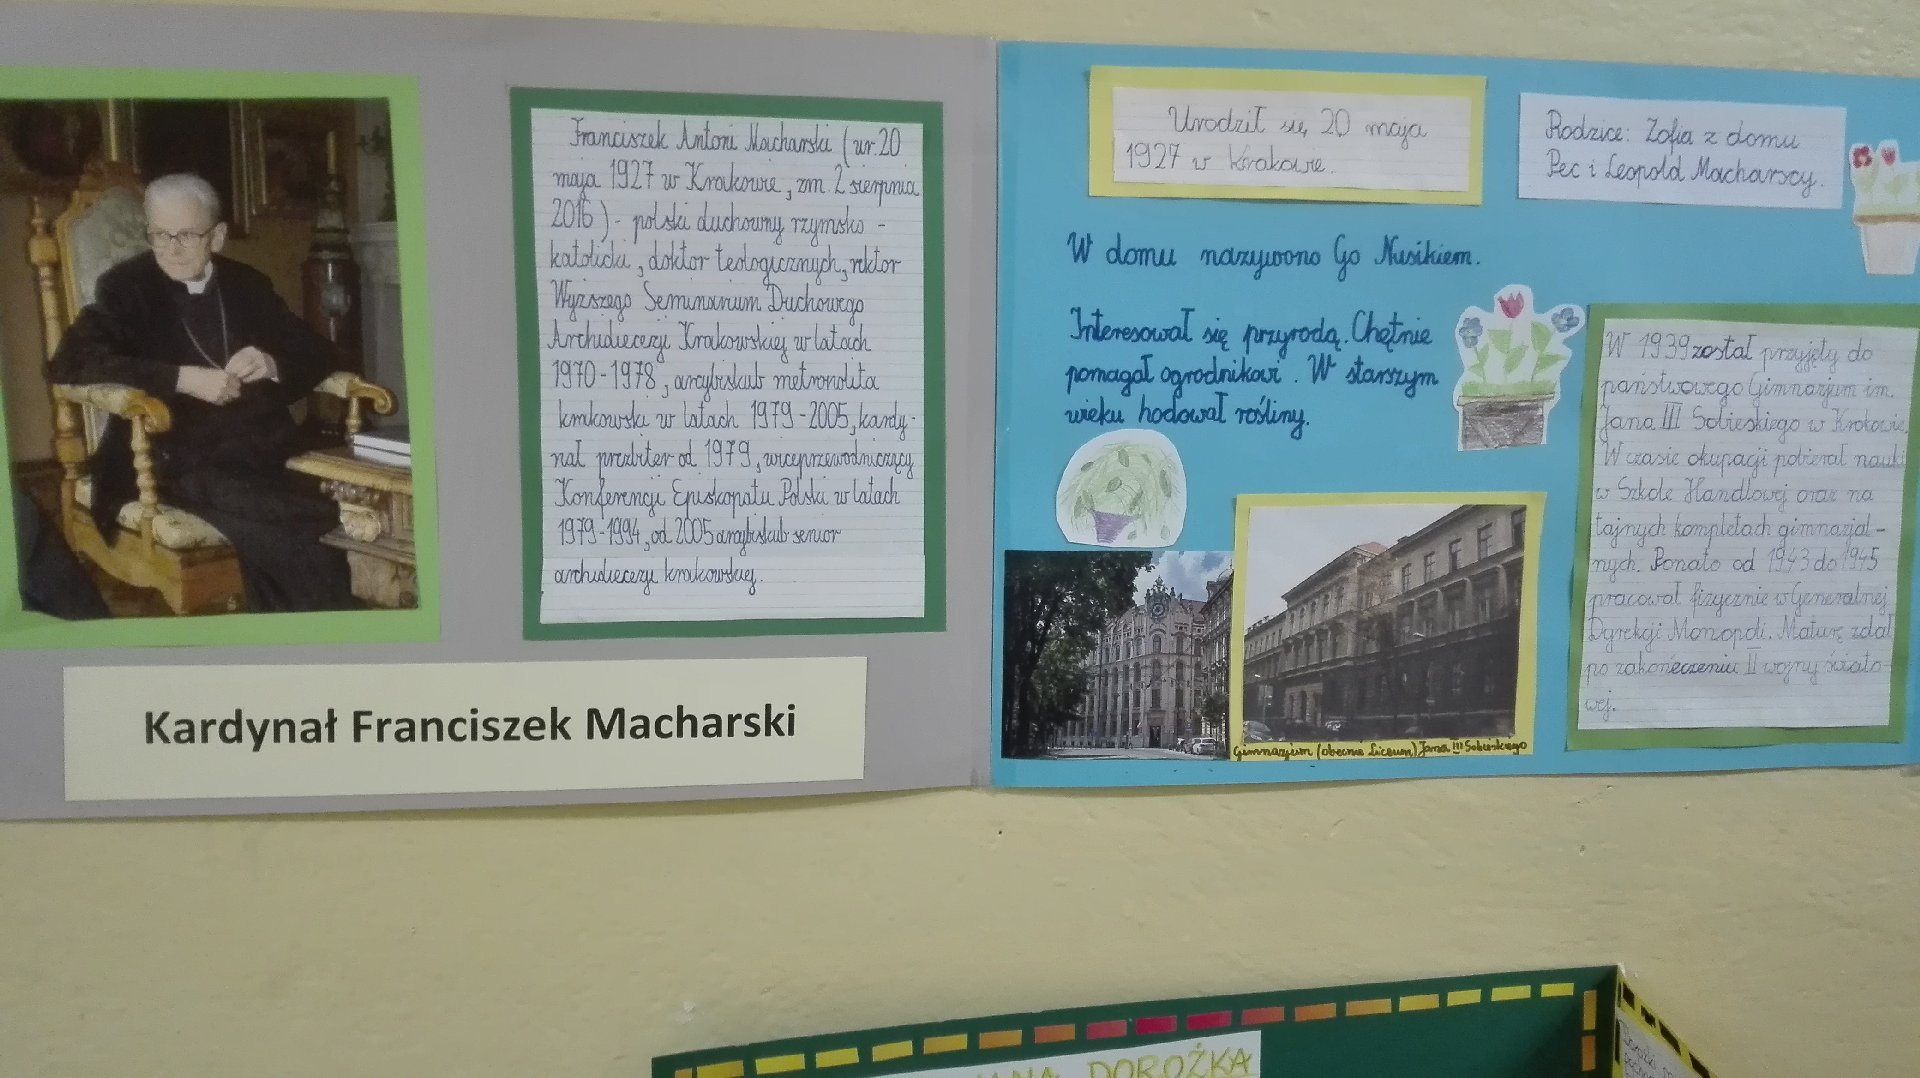 Franciszek Antoni Macharski (ur. 20
maja 1927 w Krakowie, zm. 2 sierpnia
2016) - polski duchowny rzymsko -
katolicki, doktor teologicznych, rektor
Wyższego Seminarium Duchowego
Archidiecezji Krakowskiej w latach
1970-1978, arcybiskub metropolita
krakowski w latach 1979-2005, kardy-
nał prezbiter od 1979, wiceprzewodniczący
Konferencji Episkopatu Polski w latach
1979-1994, od 2005 arcybiskub senior
archidiecezji krakowskiej.
Kardynał Franciszek Macharski
Urodził się 20 maja
1927 w Krakowie.
Rodzice: Zofia z domu
Pec i Leopold Macharscy.
W domu nazywono Go Nusikiem.
Interesował się przyrodą. Chętnie
pomagał ogrodnikowi. W starszym
wieku hodował rośliny.
Gimnazjum (obecnie Liceum) Jana III Sobieskiego
W 1939 został przyjęty do
państwowego Gimnazjum im.
Jana III Sobieskiego w Krakowie
W czasie okupacji pobierał nauki
w Szkole Handlowej oraz na
tajnych kompletach gimnazjal-
nych. Ponato od 1943 do 1945
pracował fizycznie w Generalnej
Dyrekcji Monopoli. Maturę zdał
po zakończeniu II wojny świato-
wej.
DOROŻKA